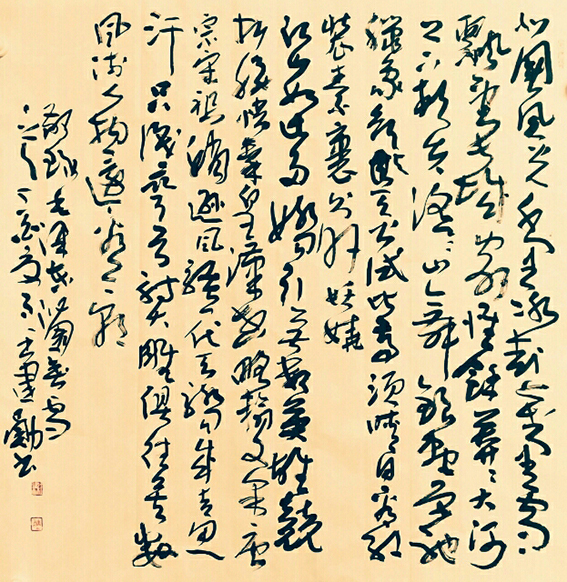 北國風光千里冰封萬里雪
飄望長城內外惟餘莽莽大河
上下頓失滔滔山舞銀蛇原馳
蠟象欲與天公試比高須晴日看紅
裝素裹分外妖嬈
江山如此多嬌引無數英雄競
折腰惜秦皇漢武略輸文采唐
宗宋祖稍遜風騷一代天驕成吉思
汗只識彎弓射大雕俱往矣數
風流人物還看今朝
敬錄毛澤東沁園春雪
書